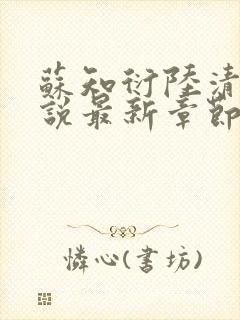 蘇知衍陸清
說最新章節
憐心(書坊)